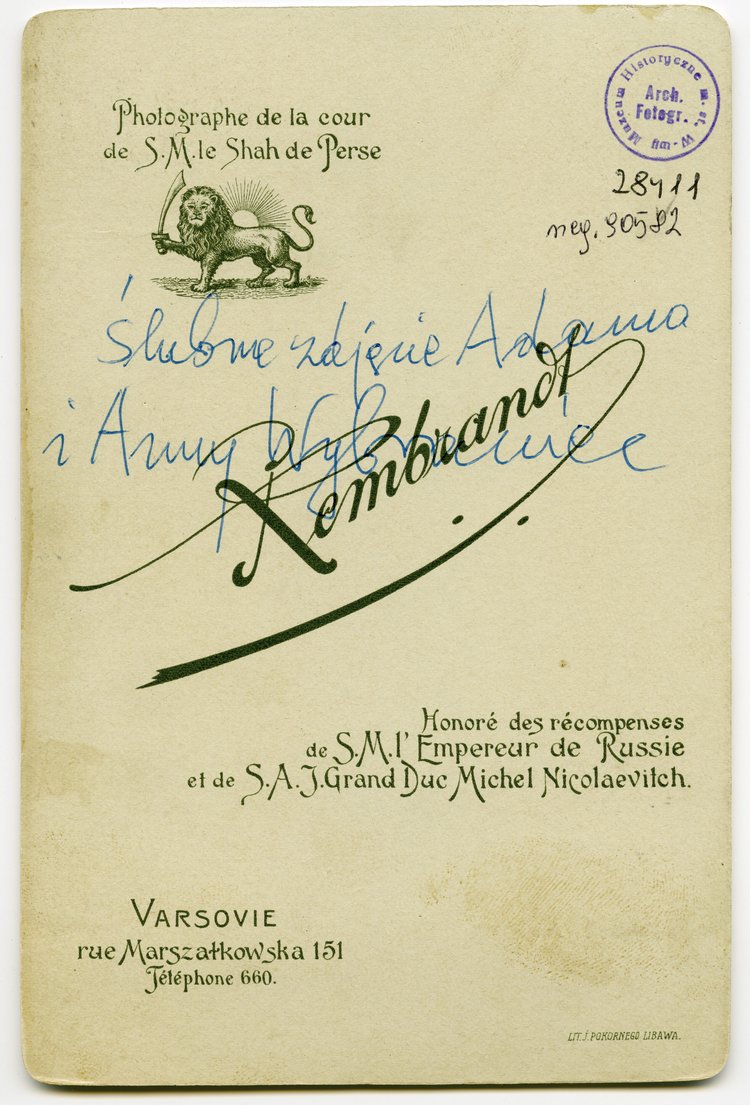 Photographe de la cour
de S.M. le Shah de Perse
Muzeum Historyczne m. st. W-wy
Arch.
Fotogr.
28411
neg. 90582
Ślubne zdjęcie Adama
i Anny
Rembrandt
Honoré des récompenses
de S.M. l' Empereur de Russie
et de S.A.J. Grand Duc Michel Nicolaevitch.
VARSOVIE
rue Marszałkowska 151
Téléphone 660.
LIT. J. POKORNEGO LIBAWA.